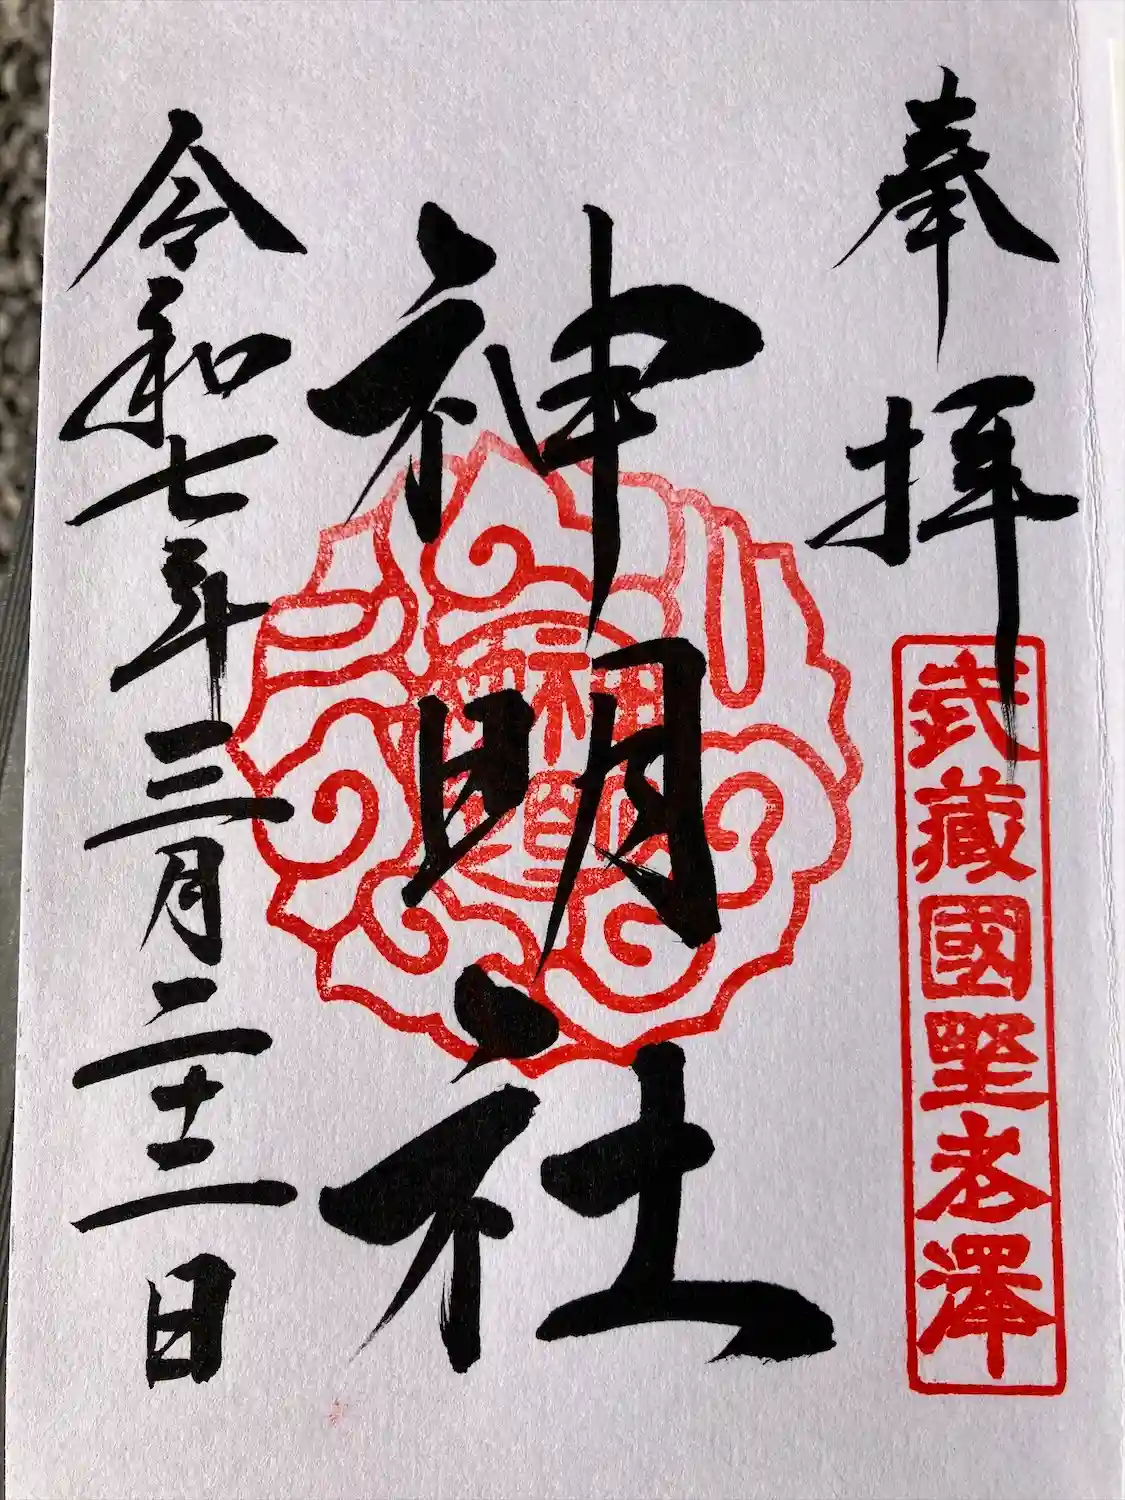 奉拝
武藏國野老澤
神明社
令和七年三月二十二日